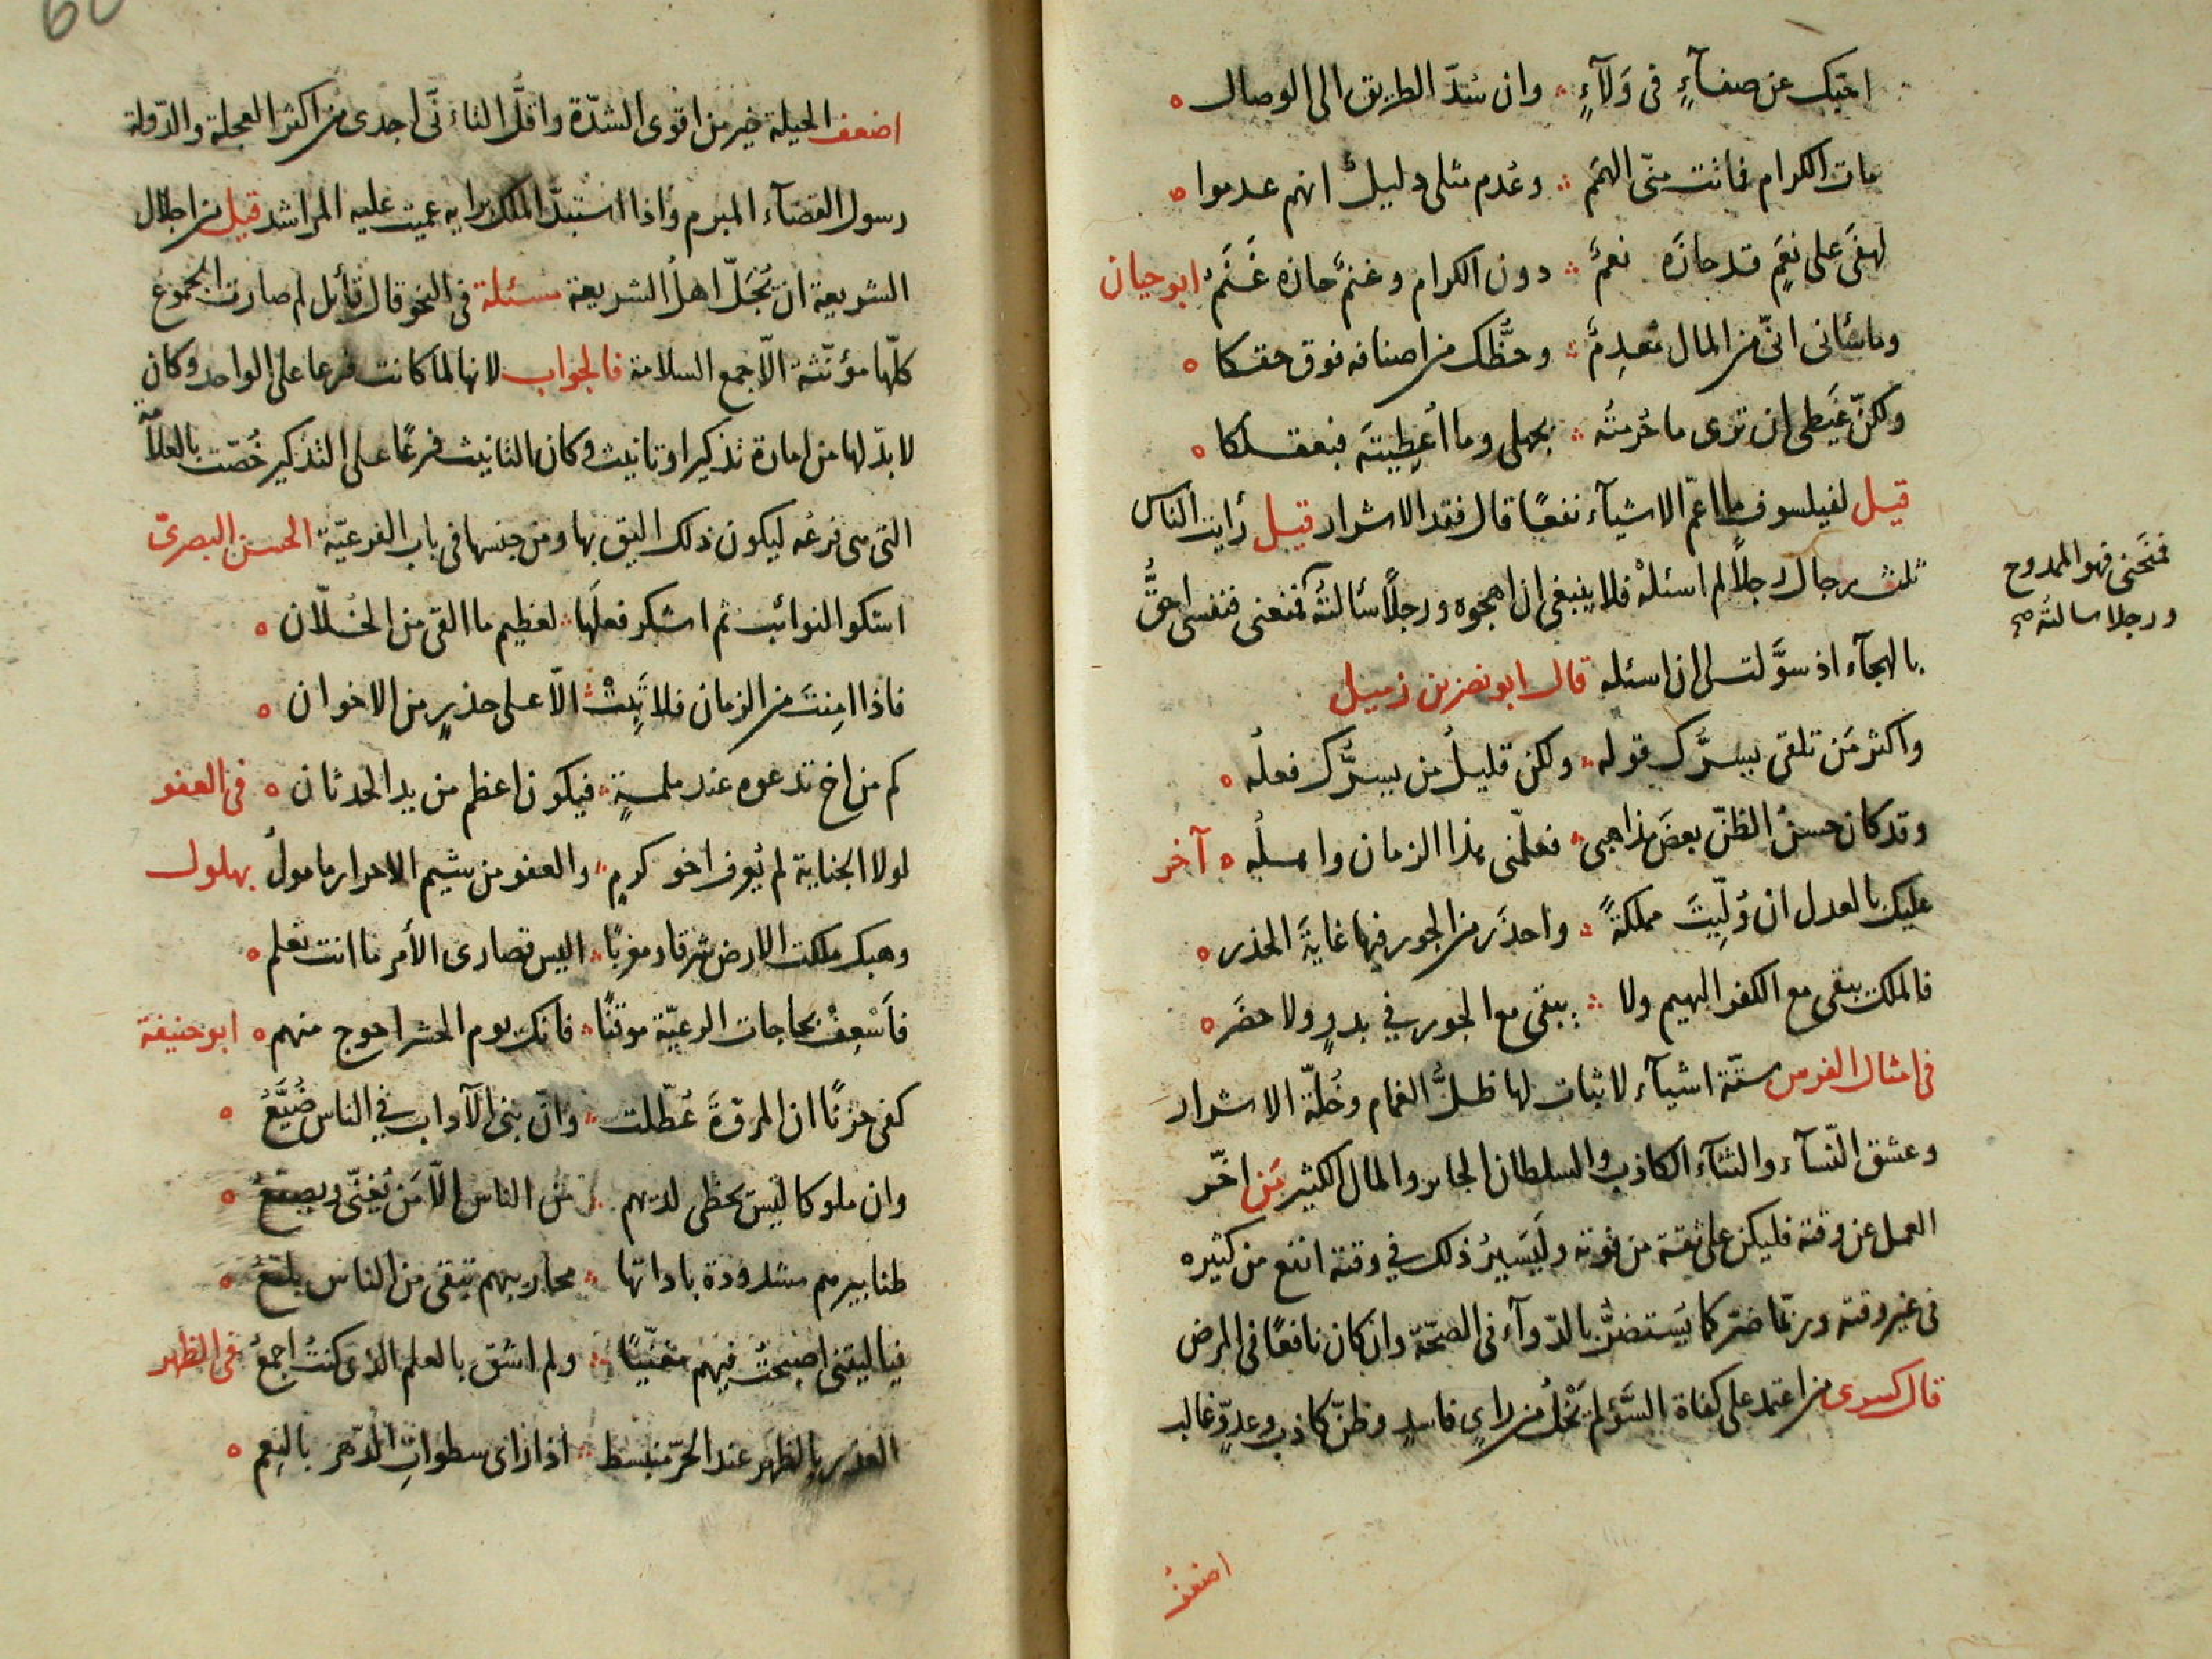 احبّك عن صفآءٍ فى وَلآءٍ ؞ وان سُدّ الطريق الى الوصال ه
مات الكرام فماتت منّى الهمَم ؞ وعُدم مثلى دليلٌ انهم عدموا ه
لهفَى على نِعَمٍ قد حازَه نعمٌ ؞ دون الكرام وغنمٌ حازه غَنَمُ ابو حيان
وما سآنى انّى من المال مُعدِمٌ ؞ وحظّك من اصنافه فوق حقكا ه
ولكنّ غَيظى ان ترى ما حُرمتُه ؞ بجهلى وما اُعطِيتَه فبعقلكا ه
قيل لفيلسوف ما اعمّ الاشيآء نفعًا قال فقد الاشرار قيل رايت الناس
ثلث رجال رجلًا لم اسئلهْ فلا ينبغى ان اهجوه ورجلًا سألتهُ فمنعنى فنفسى احقُّ
فمنحنى فهو الممدوح
ورجلا سالته صح
بالهجآء اذ سوَّلت لى ان اسئله قال ابو نصر بن زميل
واكثر مَن تلقى يسرُّك قوله ؞ ولكن قليلٌ من يسرُّك فعلُه ه
وقد كان حسنُ الظنّ بعضَ مذاهبى ؞ فعلّمنى هذا الزمان واهلُه ه آخر
عليك بالعدل ان وُلّيتَ مملكةً ؞ واحذَر من الجور فيها غايةَ الحذر ه
فالملك يبقى مع الكفر البهيم ولا ؞ يبقى مع الجور في بدوٍ ولا حضَر ه
فى امثال الفرس ستّة اشيآء لا ثبات لها ظلُّ الغمام وخُلّة الاشرار
وعشق النّسآء والثنآء الكاذب والسلطان الجابر والمال الكثير مَن اخّر
العمل عن وقته فليكن على ثقة من فوته وليَسيرُ ذلك في وقته انفع من كثيره
فى غير وقته وربّما ضرّ كما يُستضرُّ بالدّوآء فى الصحّة وان كان نافعًا فى المرض
قال كسرى من اعتمد على كفاة السَّوْء لم يَخْلُ من رايٍ فاسدٍ وظنّ كاذب وعدوٍّ غالب
اضعف
اضعف الحيلة خير من اقوى الشدّة واقلّ التاَنّى اجدى من اكثر العجلة والدّولة
رسول القضآء المبرم واذا استبدّ الملك برايه عميت عليه المراشد قيل من اجلال
الشريعة ان تُجَلّ اهل الشريعة مسئلة فى النحو قال قأئل لم صارت الجموع
كلّها مؤنّثة الّا جمع السلامة فالجواب لانها لما كانت فرعا على الواحد وكان
لا بدّ لها من امارة تذكير او تانيث وكان التانيث فرعًا على التذكير خُصّت بالعلامة
التى هى فرعُه ليكون ذلك اليق بها ومن جنسها فى باب الفرعيّة الحسن البصرىّ
اشكوا النوائب ثم اشكر فعلَها ؞ لعظيم ما القى من الخلّان ه
فاذا امِنتَ من الزمان فلا تَبِتْ ؞ الّا على حذرٍ من الاخوان ه
كم من اخ تدعوه عند ملمةٍ ؞ فيكون اعظم من يد الحدثان ه فى العفو
لولا الجناية لم يُعرف اخو كرمٍ ؞ والعفو من شيم الاحرار مامولُ بهلول
وهبك ملكت الارض شرقا ومغربًا ؞ اليس قصارى الأمر ما انت تعلم ه
فاَسْعِفْ بحاجات الرعيّة موقنًا ؞ فانك يوم الحشر احوج منهم ه ابو حنيفة
كفى حزنًا ان المرؤّةَ عُطّلت ؞ وانّ بنى الآداب في الناس ضُيَّعُ ه
وان ملوكا ليس يحظى لديهم ؞ من الناس الّا مَن يُغنّى ويصفعُ ه
طنابيرهم مشدودة باداتها ؞ محاريبهم تبقى من الناس بلقعُ ه
فيا ليتنى اصبحتُ فيهم مغنّيًا ؞ ولم اشق بالعلم الذى كنتُ اجمعُ فى الظهر
الغدر بالظهر عند الحرّ منبسط ؞ اذا زاى سطوات الدّهر بالنعم ه